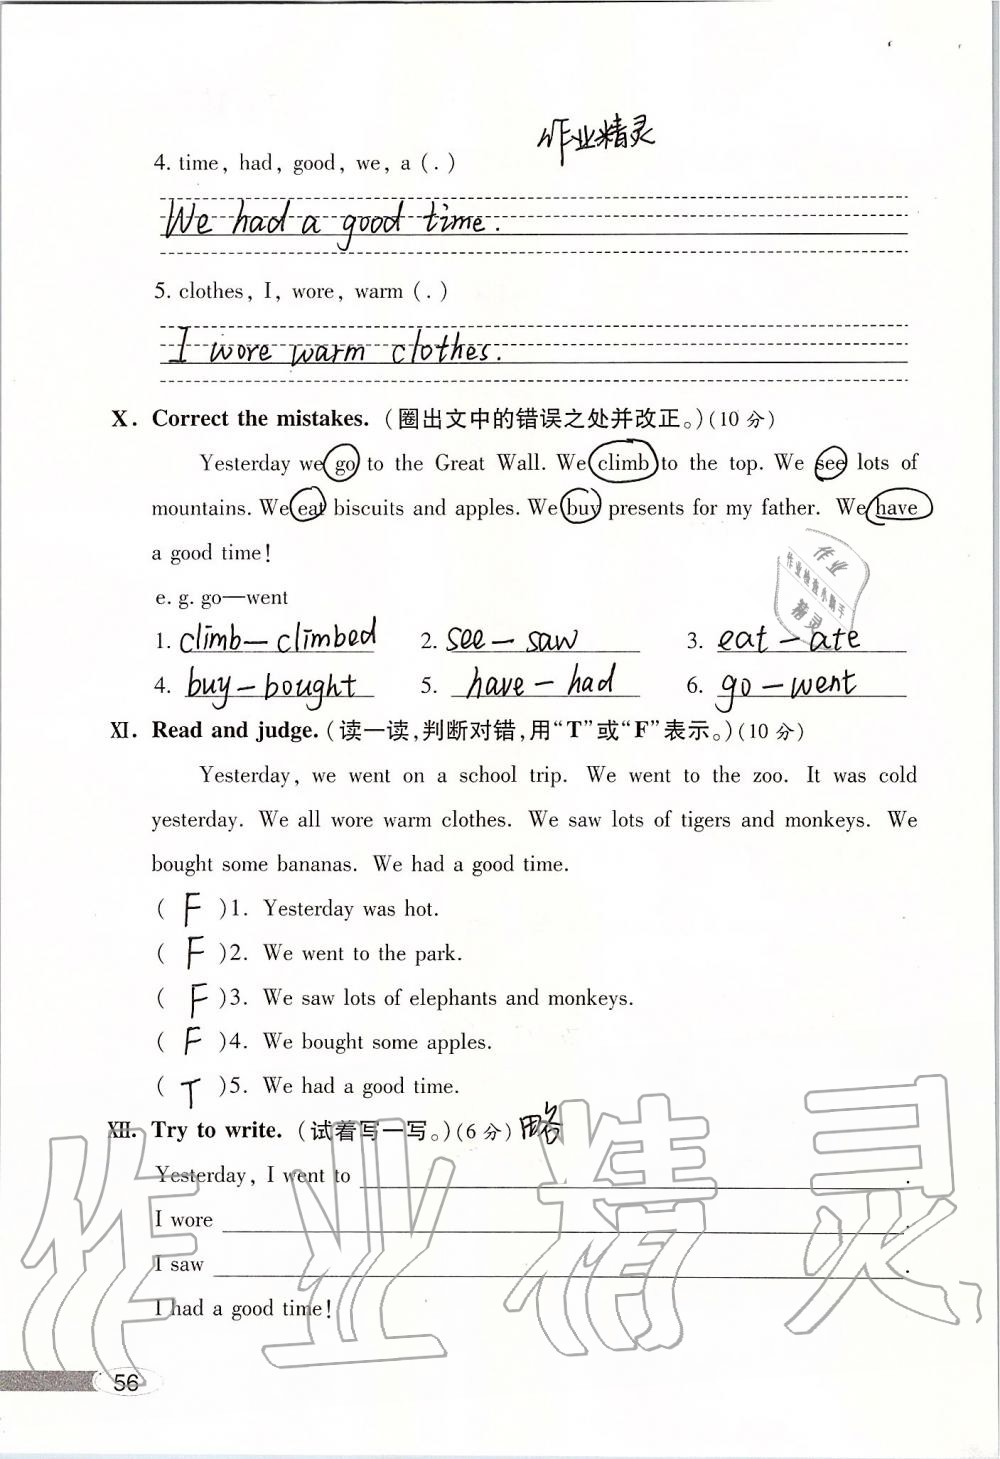 作业精灵
4. time, had, good, we, a (.)
We had a good time.
5. clothes, I, wore, warm (.)
I wore warm clothes.
X. Correct the mistakes. (圈出文中的错误之处并改正。)(10 分)
Yesterday we go to the Great Wall. We climb to the top. We see lots of
mountains. We eat biscuits and apples. We buy presents for my father. We have
a good time!
作业
作业检查小助手
精灵
e. g. go—went
1. climb—climbed 2. see—saw 3. eat—ate
4. buy—bought 5. have—had 6. go—went
XI. Read and judge. (读一读,判断对错,用“T”或“F”表示。)(10 分)
Yesterday, we went on a school trip. We went to the zoo. It was cold
yesterday. We all wore warm clothes. We saw lots of tigers and monkeys. We
bought some bananas. We had a good time.
( F )1. Yesterday was hot.
( F )2. We went to the park.
( F )3. We saw lots of elephants and monkeys.
( F )4. We bought some apples.
( T )5. We had a good time.
XII. Try to write. (试着写一写。)(6 分) 略
Yesterday, I went to .
I wore .
I saw .
I had a good time!
作业精灵
56